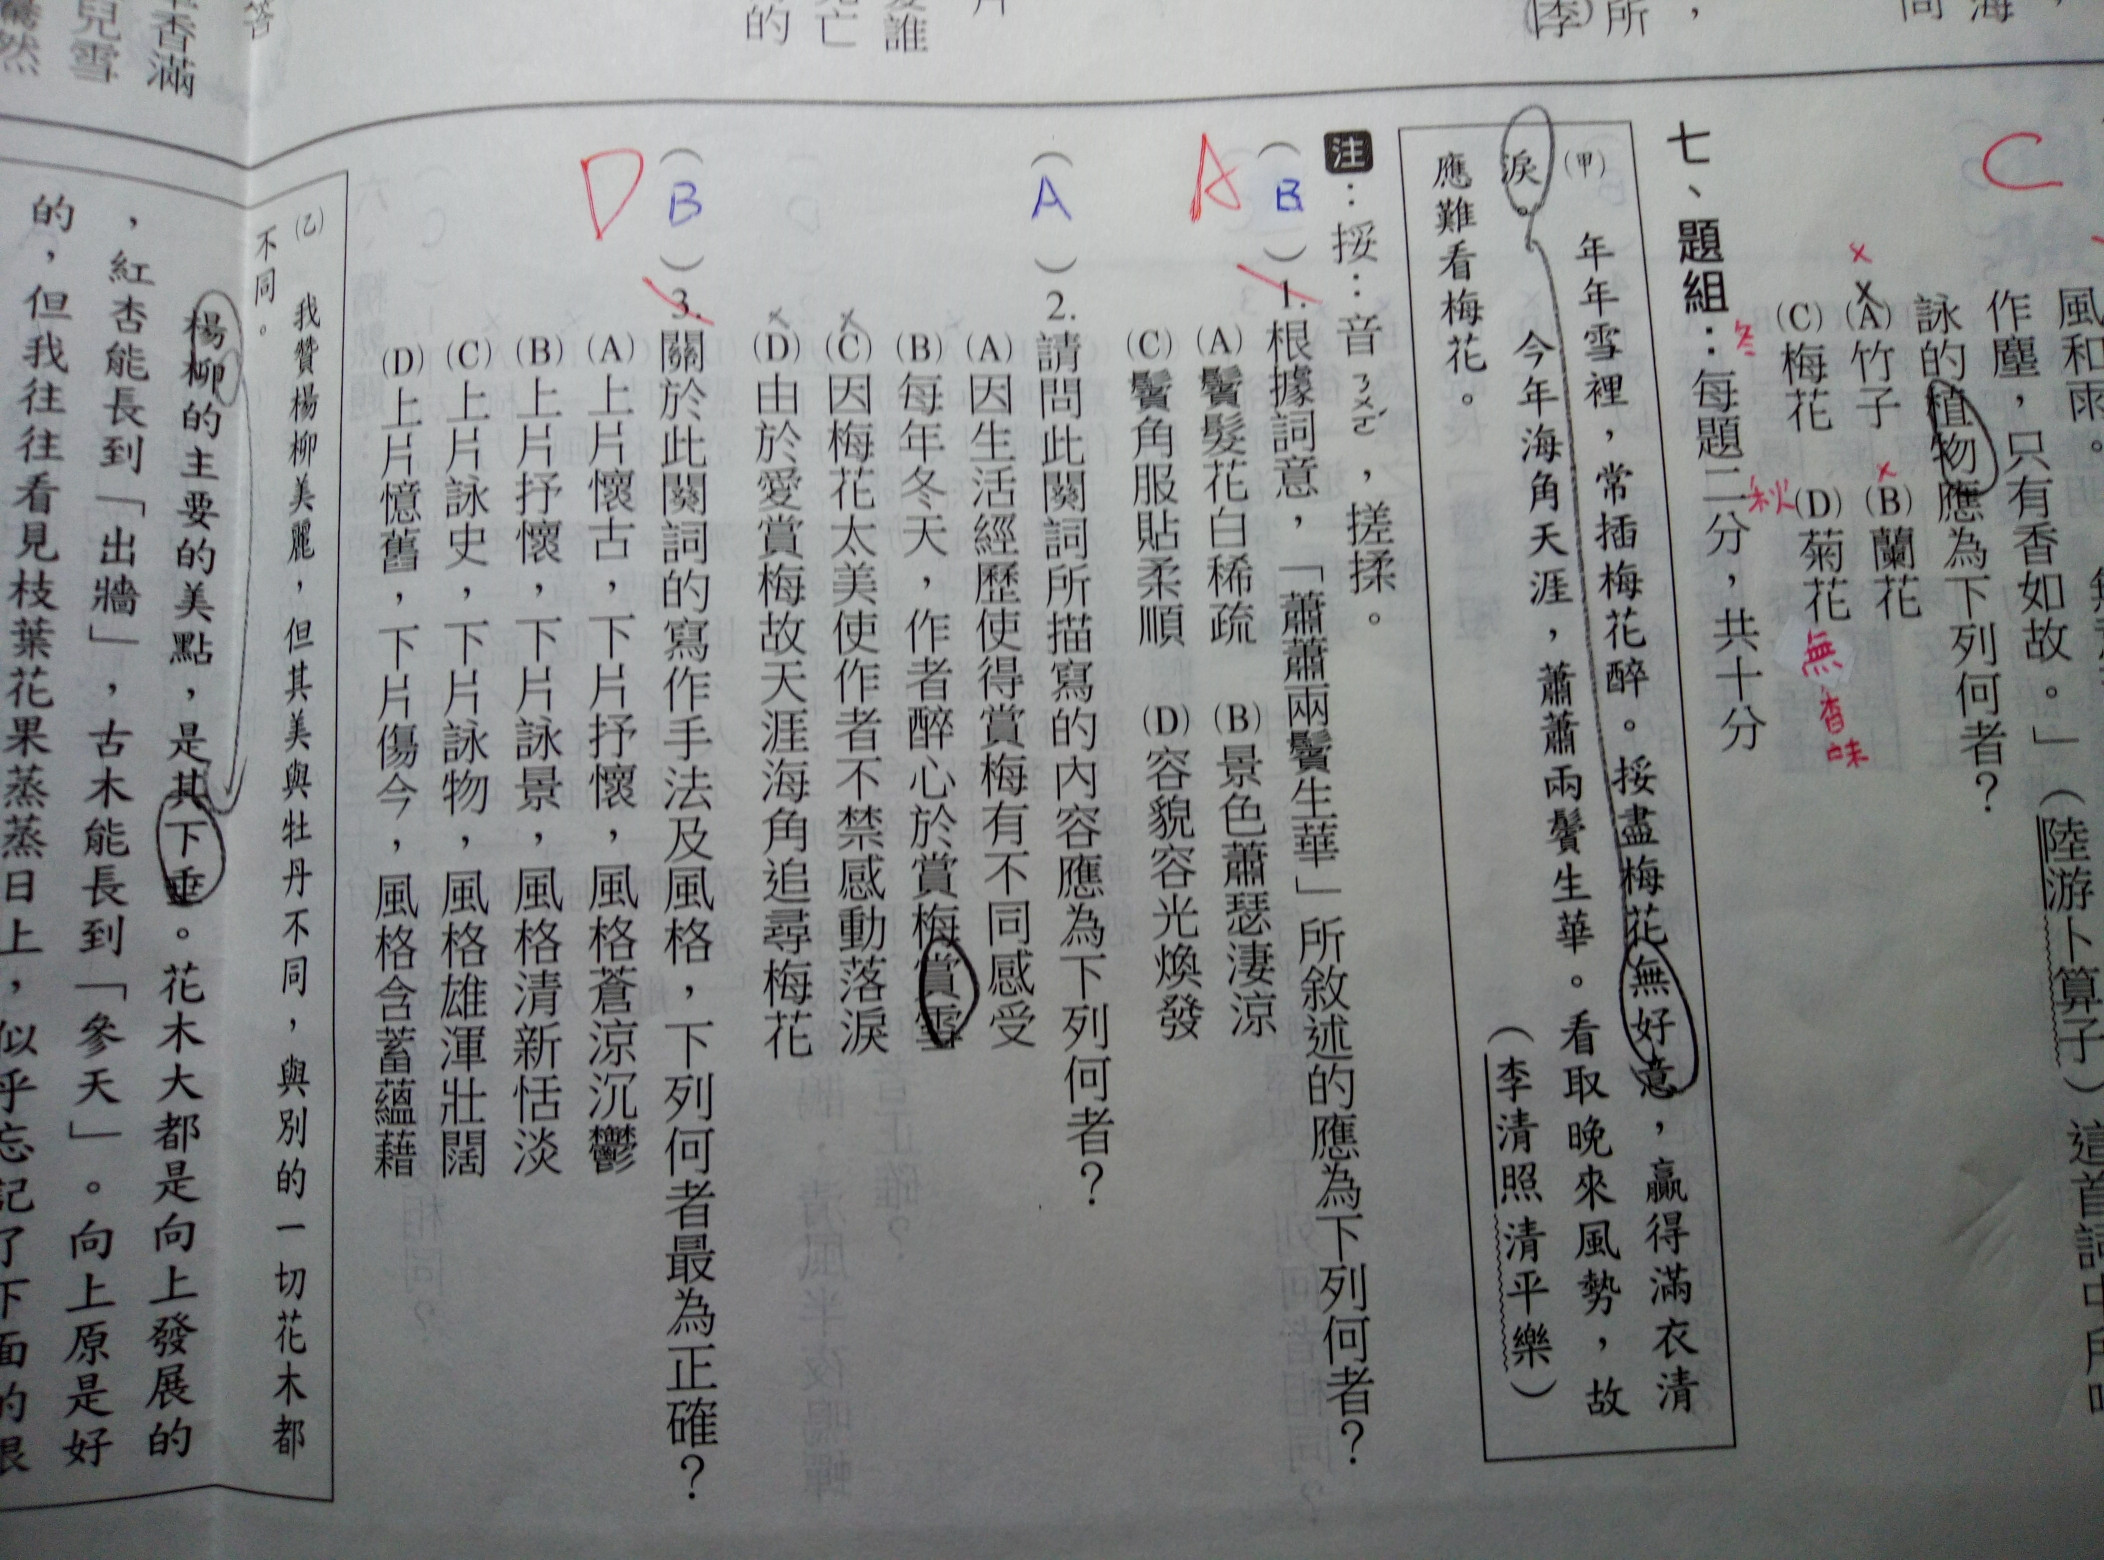 風和雨。
作塵，只有香如故。」（陸游卜算子）這首詞中所
詠的植物應為下列何者？
(A)竹子 (B)蘭花
(C)梅花 (D)菊花
C
×
×
×
冬
秋
無香味
七、題組：每題二分，共十分
(甲) 年年雪裡，常插梅花醉。挼盡梅花無好意，贏得滿衣清
淚。 今年海角天涯，蕭蕭兩鬢生華。看取晚來風勢，故
應難看梅花。 （李清照清平樂）
注：挼：音ㄋㄨㄛˊ，搓揉。
A
（B）1.根據詞意，「蕭蕭兩鬢生華」所敘述的應為下列何者？
(A)鬢髮花白稀疏 (B)景色蕭瑟淒涼
(C)鬢角服貼柔順 (D)容貌容光煥發
（A）2.請問此闋詞所描寫的內容應為下列何者？
(A)因生活經歷使得賞梅有不同感受
(B)每年冬天，作者醉心於賞梅賞雪
×
(C)因梅花太美使作者不禁感動落淚
×
(D)由於愛賞梅故天涯海角追尋梅花
D
（B）3.關於此闋詞的寫作手法及風格，下列何者最為正確？
(A)上片懷古，下片抒懷，風格蒼涼沉鬱
(B)上片抒懷，下片詠景，風格清新恬淡
(C)上片詠史，下片詠物，風格雄渾壯闊
(D)上片憶舊，下片傷今，風格含蓄蘊藉
(乙) 我贊楊柳美麗，但其美與牡丹不同，與別的一切花木都
不同。
楊柳的主要的美點，是其下垂。花木大都是向上發展的
，紅杏能長到「出牆」，古木能長到「參天」。向上原是好
的，但我往往看見枝葉花果蒸蒸日上，似乎忘記了下面的根